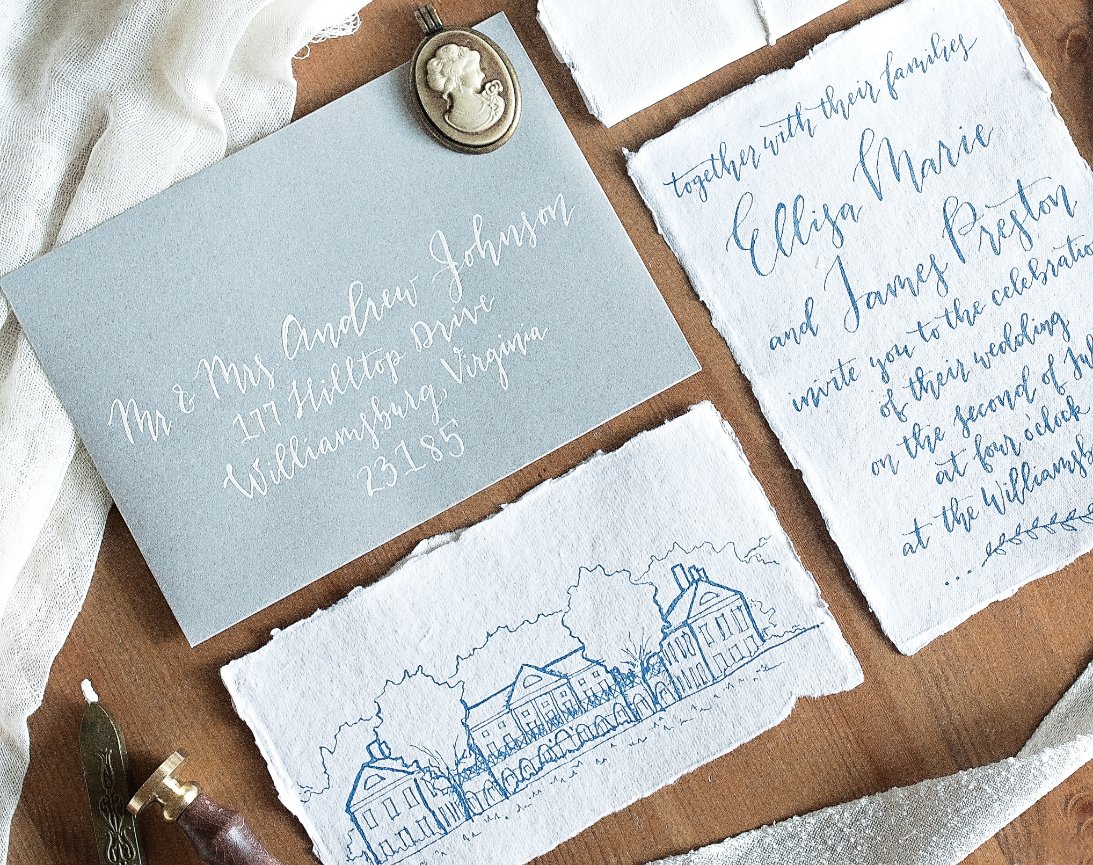 Mr & Mrs Andrew Johnson
177 Hilltop Drive
Williamsburg, Virginia
23185
together with their families
Ellisa Marie
and James Preston
invite you to the celebration
of their wedding
on the second of July
at four o'clock
at the Williamsb
...